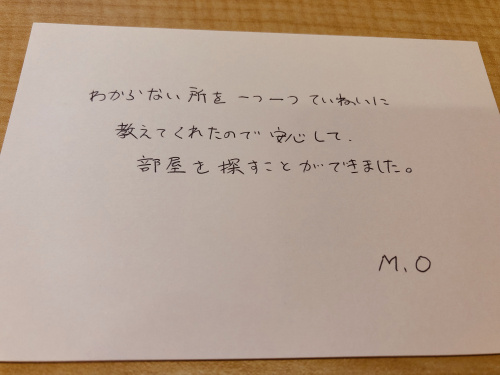 わからない所を一つ一つていねいに
教えてくれたので安心して、
部屋を探すことができました。
M.O